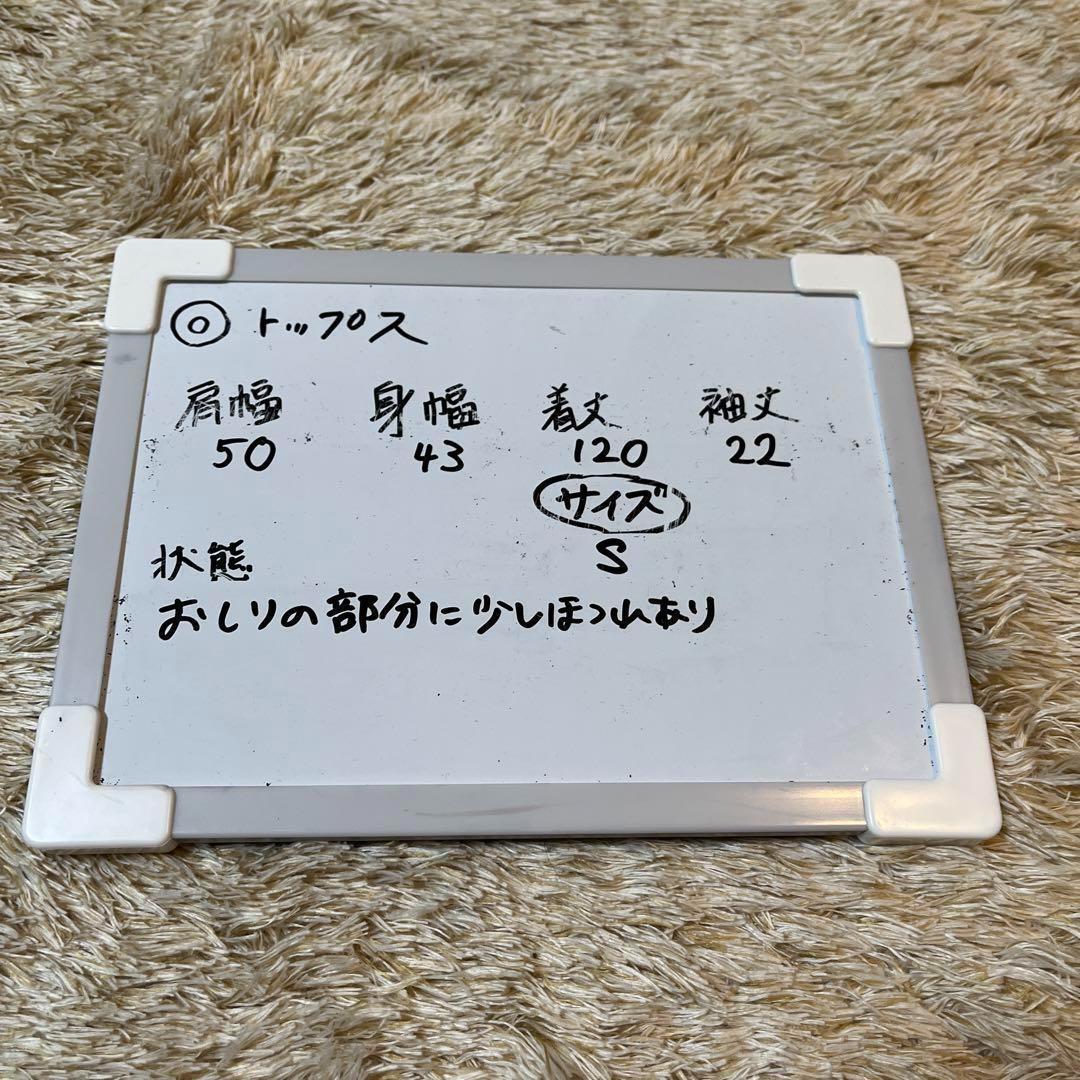 ◎ トップス
肩幅 身幅 着丈 袖丈
50 43 120 22
サイズ
S
状態
おしりの部分に少しほつれあり